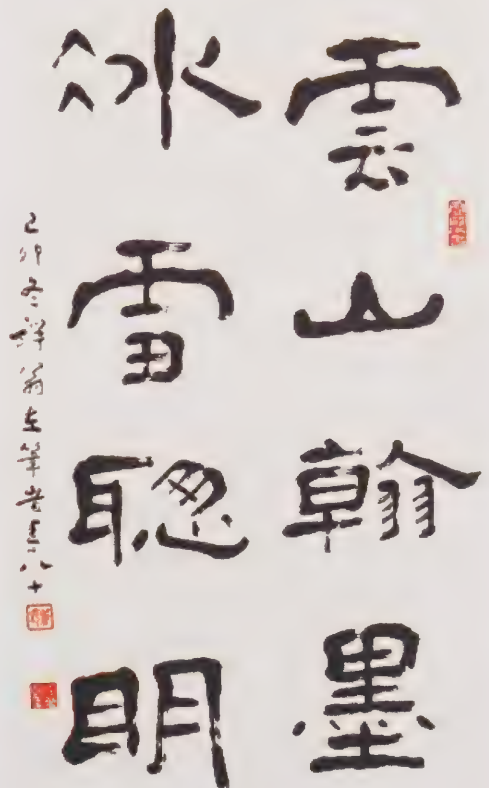 雲山翰墨
冰雪聰明
己卯冬 翁左筆 八十